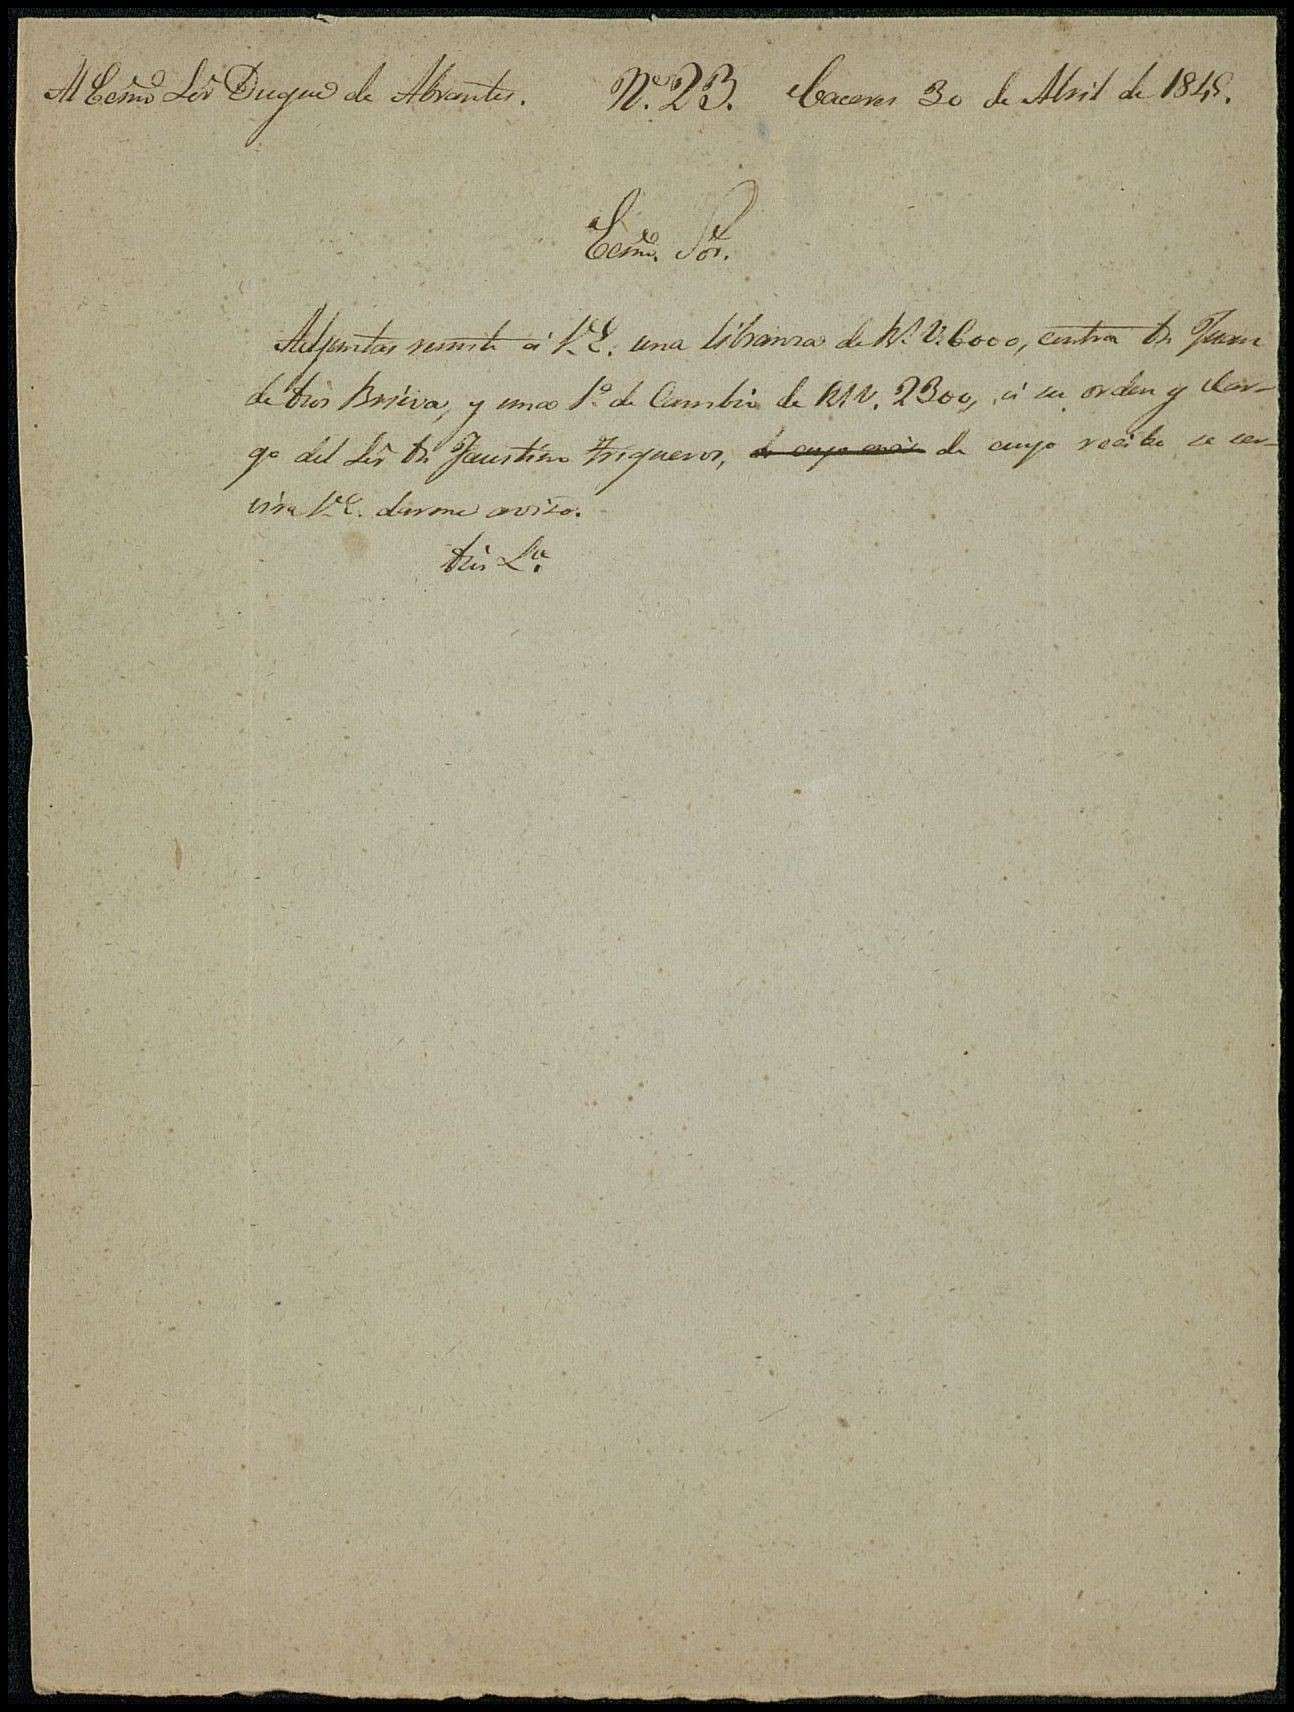 Al Ecsmo Sor Duque de Abrantes. No. 23. Caceres 30 de Abril de 1845.
Ecsmo. Sor.
Adjuntas remito á V.E. una libranza de Rs. V. 6000, contra Dn Juan
de Dios Brieva, y una 1a. de Cambio de Rs V. 2300, á su orden y car-
go del Sor Dn Faustino Trigueros, de cuyo recibo se ser-
vira V.E. darme aviso.
Dios &a.